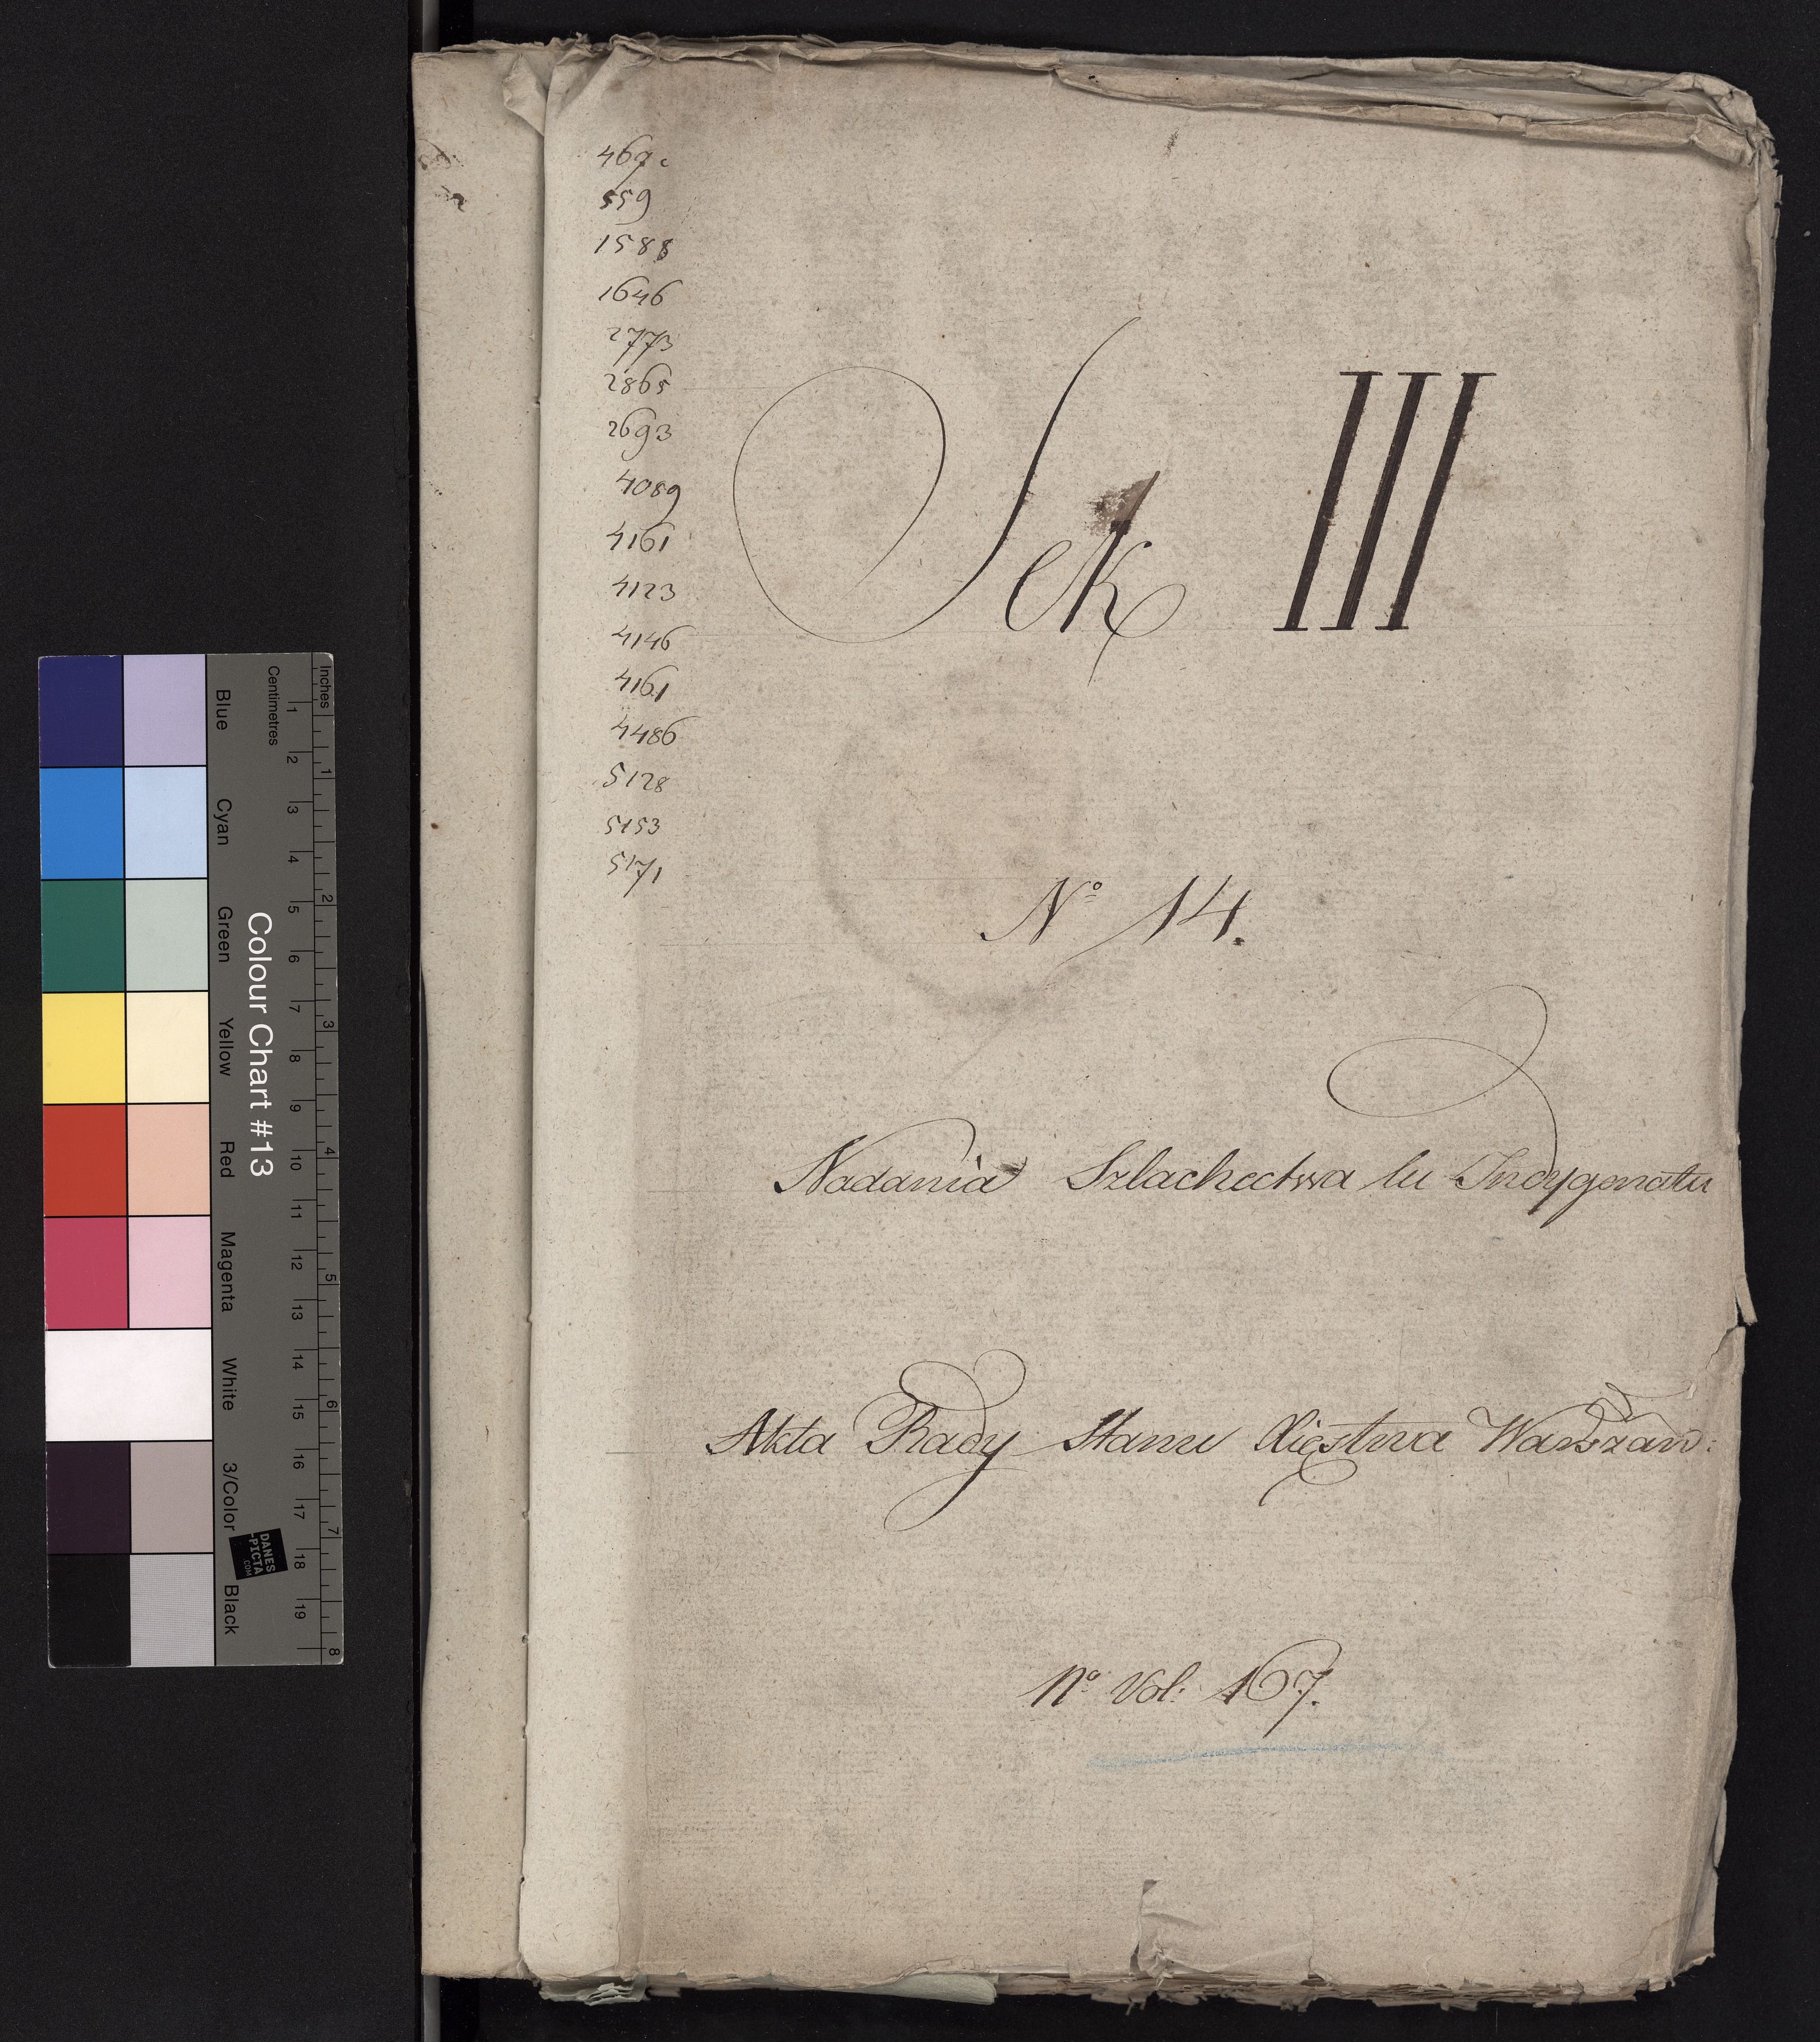 467.
559
1588
1646
2773
2865
2693
4089
4161
4123
4146
4161
4486
5128
5153
5171
Sek III
Nº 14.
Nadania Szlachectwa lu Indygenatu
Akta Rady Stanu Xięstwa Warszaw:
Nº Vol: 167.
Inches
Centimetres
1 2 3 4 5 6 7 8
1 2 3 4 5 6 7 8 9 10 11 12 13 14 15 16 17 18 19
Colour Chart #13
Blue
Cyan
Green
Yellow
Red
Magenta
White
3/Color
Black
DANES
-PICTA
.COM